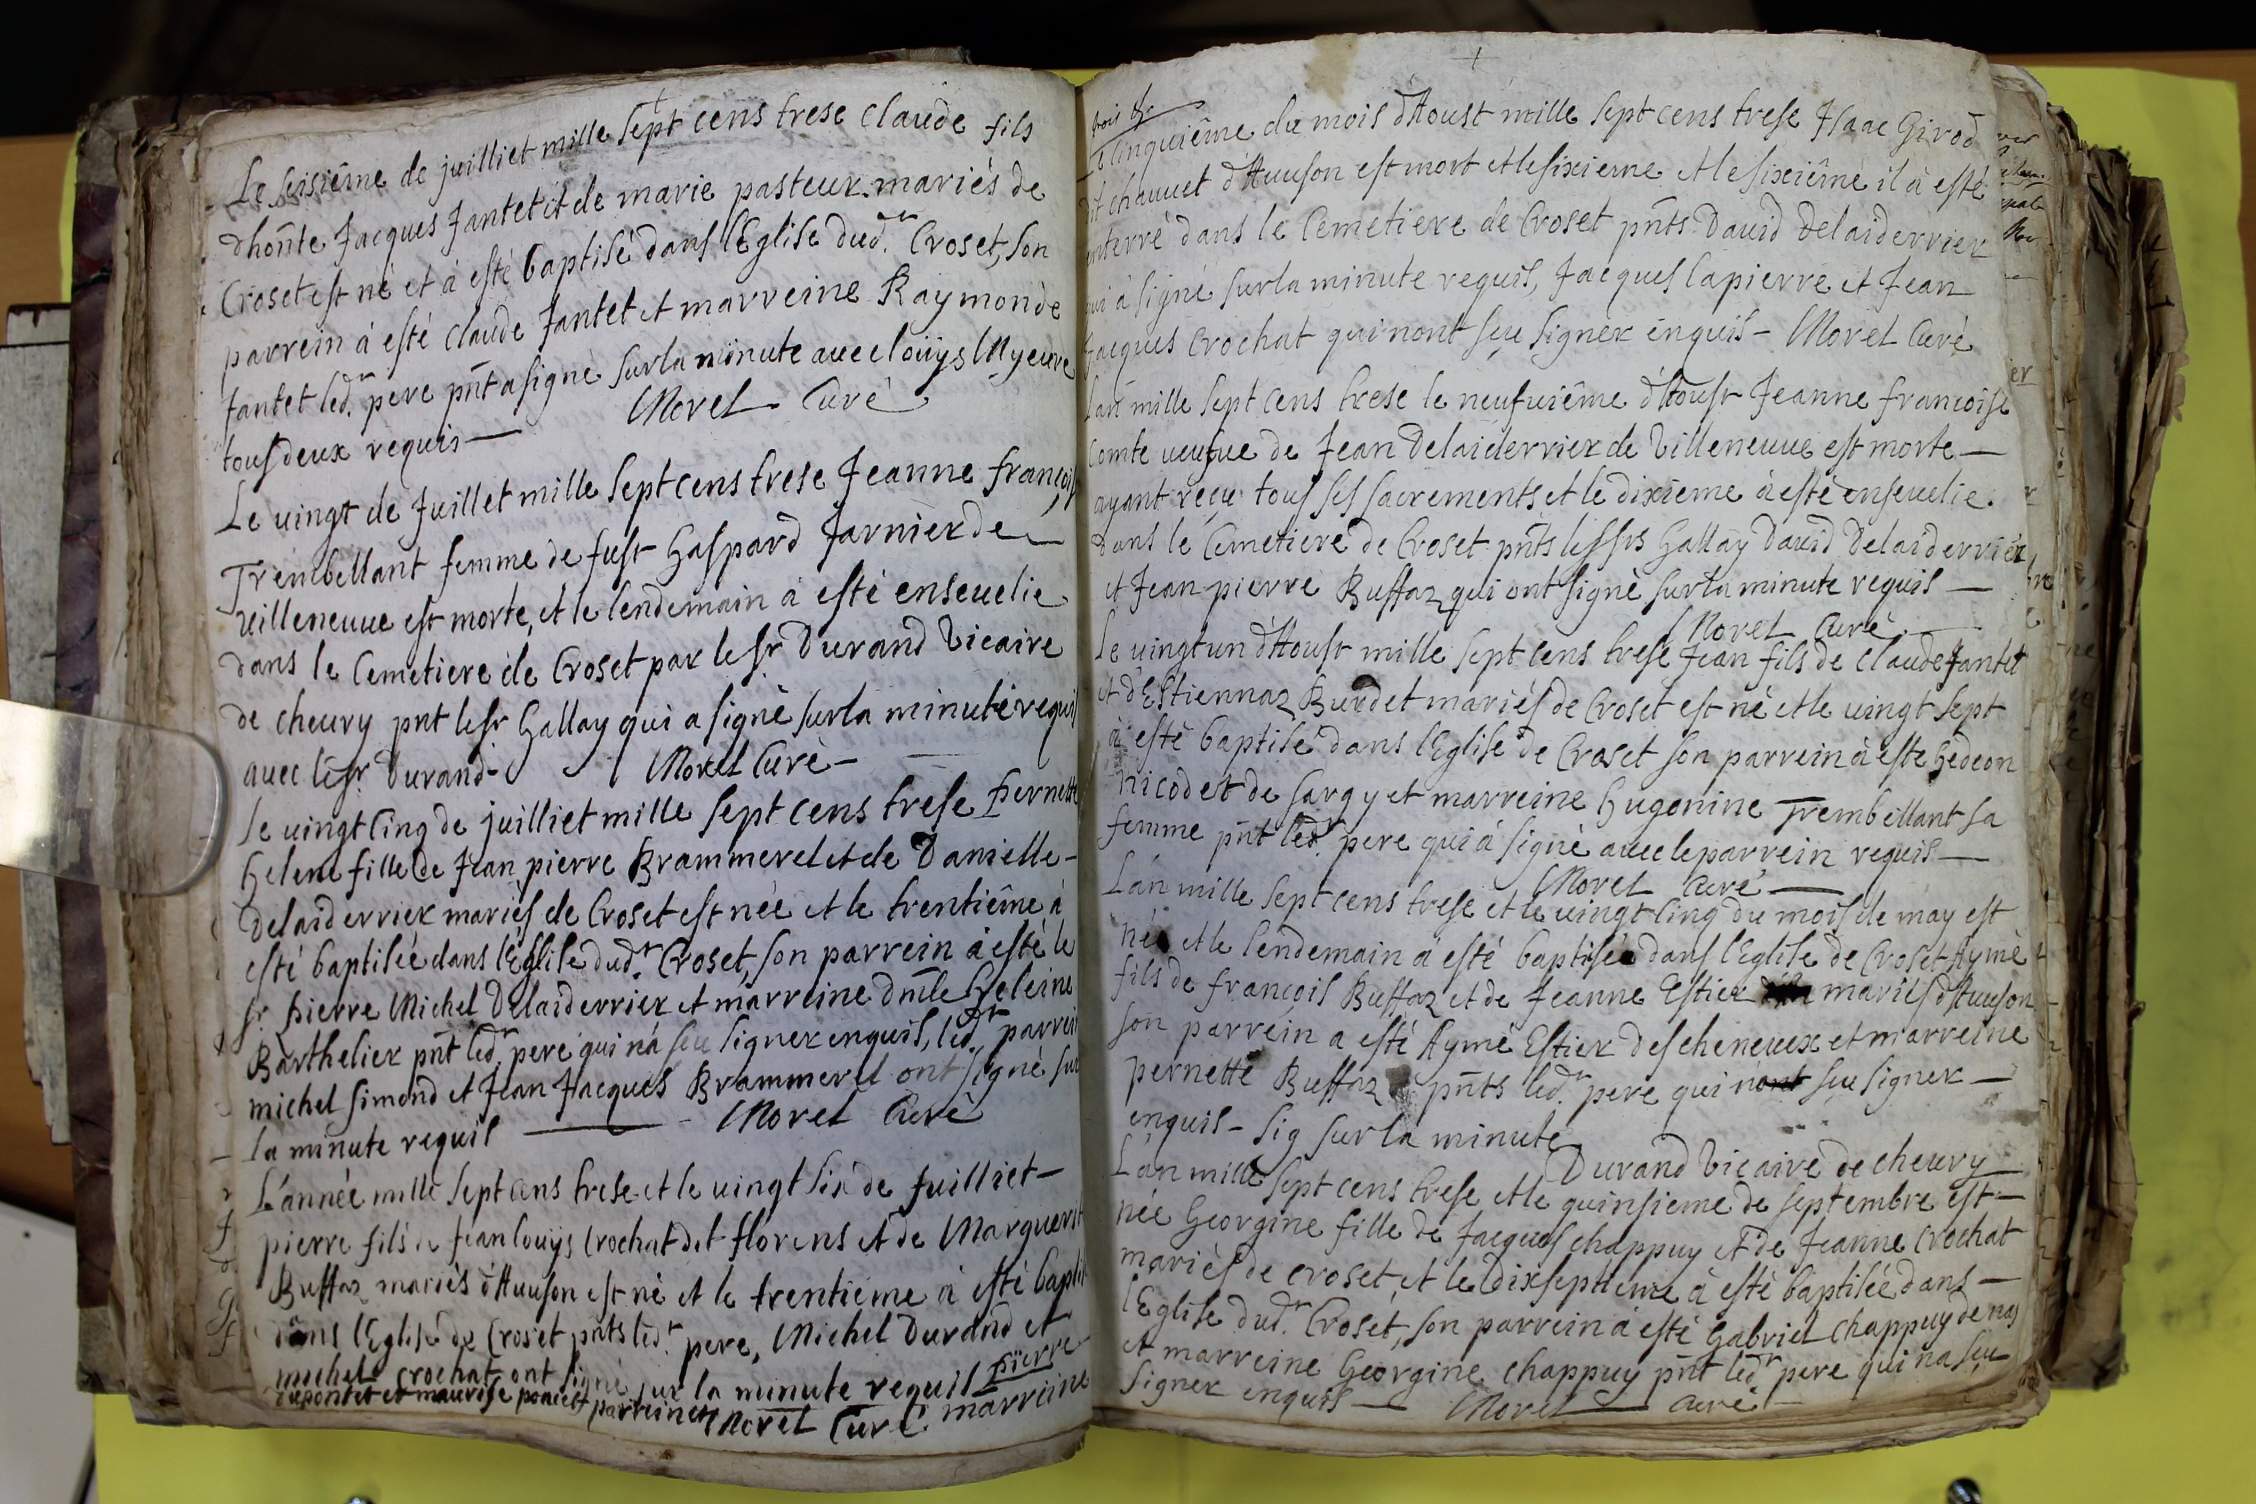 Le seisiême de juilliet mille sept cens trese Claude fils
dhoñte Jacques Jantet et de marie pasteur mariés de
Croset est né et à esté baptisé dans l'Eglise dud.r Croset, son
parrein à esté Claude Jantet et marreine Raymonde
Jantet led.r pere pñt a signe sur la minute avec Louÿs
tous deux requis — Morel Curé
Le vingt de Juillet mille sept cens trese Jeanne françoise
Trembellant femme de fust Gaspard Jarnier de —
Villeneuve est morte, et le lendemain à esté ensevelie
dans le Cemetiere de Croset par le sr Durand Vicaire
de cheury pnt le sr Gallay qui a signé sur la minute requis
avec le sr. Durand - Morel Curé —
Le vingt cinq de juilliet mille sept cens trese Pernette
Helene fille de Jean pierre Brammerel et de Danielle -
Delaiderrier mariés de Croset est née et le trentiême à
esté baptisée dans l'Eglise dud.r Croset, son parrein à esté le
sr. pierre Michel Delaiderrier et marreine dm̃lle Heleine
Barthelier pñt led.r pere qui n'a seu signer enquis, led.r parrein
michel simond et Jean Jacques Brammerel ont signé sur
la minute requis — Morel Curé
L'année mille sept cens trese et le vingt six de Juilliet —
pierre fils de Jean louÿs Crochat dit florens et de Marguerite
Buffaz mariés d'Avuson est né et le trentiéme à esté baptisé
dans l'Eglise de Croset pñts led.r pere, Michel Durand et
michel Crochat ont signé sur la minute requis pierre
dupontet et maurise poncet parrein et marreine
Morel Curé
Le cinquiême du mois d'Aoust mille sept cens trese Isaac Girod
dit chauvet d'Avuson est mort et le sixieme et le sixiême il à esté
enterré dans le Cemetiere de Croset pñts David Delaiderrier
qui à signé sur la minute requis, Jacques Lapierre et Jean
Jacques Crochat qui n'ont seu signer enquis — Morel Curé
L'an mille sept cens trese le neufviême d'Aoust Jeanne françoise
Comte veufve de Jean Delaiderrier de Villeneuve est morte —
ayant reçu tous ses sacrements et le dixieme à esté ensevelie
dans le Cemetiere de Croset pñts les srs Gallay David Delaiderrier
et Jean pierre Buffaz qui ont signé sur la minute requis —
Morel Curé
Le vingt un d'Aoust mille sept cens trese Jean fils de Claude Jantet
et d'Estiennaz Burdet mariés de Croset est né et le vingt sept
à esté baptisé dans l'Eglise de Croset son parrein à esté Gedeon
Nicodet de sargy et marreine Hugonine Trembellant sa
femme pñt led.r pere qui à signé avec le parrein requis —
Morel Curé —
L'an mille sept cens trese et le vingt cinq du mois de may est
né et le lendemain à esté baptisé dans l'Eglise de Croset Aymé
fils de françois Buffaz et de Jeanne Estier mariés d'Avuson
son parrein a esté Aymé Estier des cheneves et marreine
pernette Buffaz pñts led.r pere qui n'ont seu signer —
enquis - sig sur la minute
Durand Vicaire de cheury
L'an mille sept cens trese et le quinsieme de septembre est —
née Georgine fille de Jacques chappuy et de Jeanne Crochat
mariés de Croset, et le dixseptieme à esté baptisée dans —
l'Eglise dud.r Croset, son parrein à esté Gabriel chappuy de nas
et marreine Georgine chappuy pñt led.r pere qui na seu
signer enquis — Morel Curé —